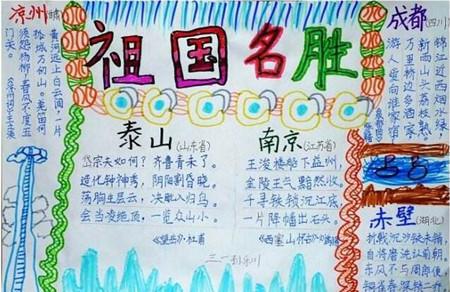 祖国名胜
凉州
黄河远上白云间,一片
孤城万仞山。羌笛何
须怨杨柳,春风不度玉
门关。
泰山(山东省)
岱宗夫如何?齐鲁青未了。
造化钟神秀,阴阳割昏晓。
荡胸生层云,决眦入归鸟。
会当凌绝顶,一览众山小。
《望岳》·杜甫
南京(江苏省)
王浚楼船下益州,
金陵王气黯然收。
千寻铁锁沉江底,
一片降幡出石头。
《西塞山怀古》
三一
成都(四川)
锦江近西烟水绿,
新雨山头荔枝熟。
万里桥边多酒家,
游人爱向谁家宿。
赤壁(湖北)
折戟沉沙铁未销,
自将磨洗认前朝。
东风不与周郎便,
铜雀春深锁二乔。